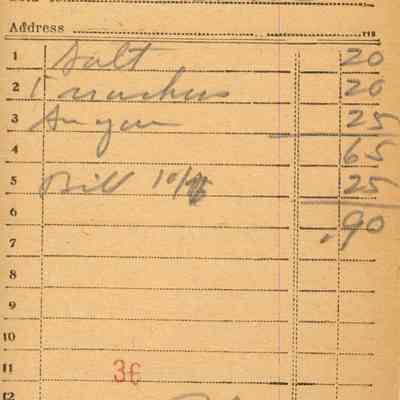 Address
1 Salt 20
2 Crackers 20
3 Sugar 25
4 65
5 Bill 10/ 25
6 .90
7
8
9
10
11 36
12